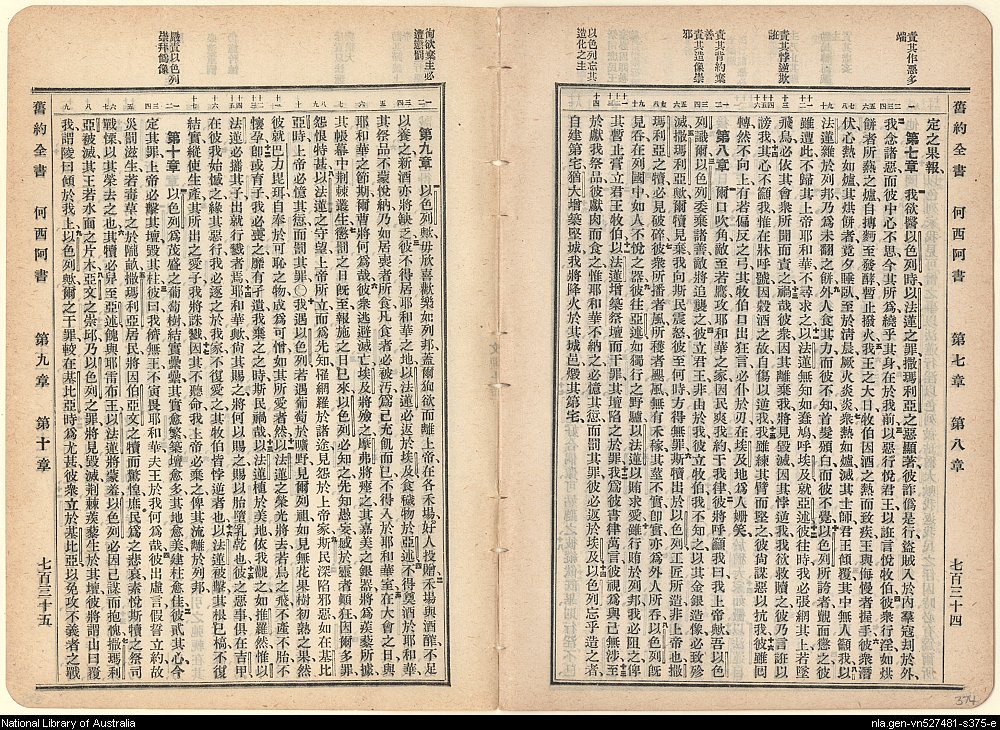 舊約全書 何西阿書 第七章 第八章 七百三十四
責其作惡多端
責其悖逆欺誑
責其背約棄善
責其造像崇邪
以色列忘其造化之主
定之果報、
第七章 我欲醫以色列時、以法蓮之罪、撒瑪利亞之惡顯著、彼詐僞是行、盜賊入於內、羣寇刧於外、
我念諸惡、而彼中心不思、今其所爲繞乎其身、在於我前、以惡行悅君王、以誑言悅牧伯、彼衆行淫、如烘
餅者所爇之爐、自摶麵至發酵、暫止撥火、我王之大日、牧伯因酒之熱而致疾、王與侮慢者握手、彼衆潛
伏、心熱如爐、其烘餅者竟夕睡臥、至於淸晨、厥火炎炎、衆熱如爐、滅其士師、君王傾覆、其中無人顧我、以
法蓮雜於列邦、乃爲未翻之餅、外人食其力、而彼不知、首髮頒白、而彼不覺、以色列所誇者、覿面儆之、彼
雖遭此、不歸其上帝耶和華、不尋求之、以法蓮無知、如蠢鳩、呼埃及、就亞述、彼往時、我必張網其上、若墜
飛鳥、必依其會衆所聞而責之、禍哉彼衆、因其離棄我、將見毀滅、因其悖逆我、我欲救贖之、彼乃言誑以
謗我、其心不籲我、惟在牀呼號、因穀酒之故自傷、以逆我、我雖練其臂而堅之、彼尙謀惡以抗我、彼雖回
轉、然不向上、有若偏反之弓、其牧伯口出狂言、必仆於刃、在埃及地爲人姍笑、
第八章 爾口吹角、敵至若鷹、攻耶和華之家、因民爽我約、干我律、彼將呼籲我曰、我上帝歟、吾以色
列識爾、以色列委棄諸善、敵將追襲之、彼立君王、非由於我、彼立牧伯、我不知之、以其金銀造像、必致殄
滅、撒瑪利亞歟、爾犢見棄、我向斯民震怒、彼至何時方得無罪、斯犢出於以色列、工匠所造、非上帝也、撒
瑪利亞之犢、必見破碎、彼衆所播者風、所穫者飈風、無有禾稼、其莖不實、卽實亦爲外人所吞、以色列旣
見吞、在列國中、如人不悅之器、彼往亞述、如獨行之野驢、以法蓮以賄求愛、雖行賄於列邦、我必阻之、俾
其暫止膏立君王牧伯、以法蓮增築祭壇而干罪、其壇陷之於罪、我爲彼書律萬言、彼視爲與己無涉、至
於獻我祭品、彼獻肉而食之、惟耶和華不納之、必憶其愆而罰其罪、彼必返於埃及、以色列忘乎造之者、
自建第宅、猶大增築堅城、我將降火於其城邑、燬其第宅、
舊約全書 何西阿書 第九章 第十章 七百三十五
洵欲棄主必遭懲罰
嚴責以色列崇拜偶像
第九章 以色列歟、毋欣喜歡樂、如列邦、蓋爾徇欲而離上帝、在各禾場好人投贈、禾場與酒醡不足
以養之、新酒亦將缺之、彼不得居耶和華之地、以法蓮必返於埃及、食穢物於亞述、不得奠酒於耶和華、
其祭品不蒙悅納、乃如居喪者所食、凡食者必被污、爲己充飢而已、不得入於耶和華室、在大會之日、與
耶和華之節期、爾曹將何爲哉、彼衆逃避滅亡、埃及將殮之、摩弗將瘞之、其嘉美之銀器、將爲蒺藜所據、
其帳幕中荆棘叢生、懲罰之日旣至、報施之日已來、以色列必知之、先知愚妄、感於靈者癲狂、因爾多罪、
怨恨特甚、以法蓮之守望、上帝所立、而爲先知、羅網於諸途、見怨於上帝家、斯民深陷邪惡、如在基比
亞時、上帝必憶其愆、而罰其罪、〇我遇以色列、若遇葡萄於曠野、見爾列祖、如見無花果樹初熟之果、然
彼就巴力毘珥、自奉於可恥之物、成爲可憎、如其所愛者然、以法蓮之榮光將去、若鳥之飛、不產不胎不
懷孕、卽或育子、我必喪之、靡有孑遺、我棄之之時、斯民禍哉、以法蓮植於美地、依我觀之、如推羅然、惟以
法蓮必攜其子出、就行戮者焉、耶和華歟、尙其賜之、將何以賜之、賜以胎墮乳乾也、彼之惡事、俱在吉甲、
在彼我始憾之、緣其惡行、我必逐之於我家、不復愛之、其牧伯皆悖逆者也、以法蓮被擊、其根已槁、不復
結實、縱使生產、其所出之愛子、我將誅戮、因其不聽命、我上帝必棄之、俾其流離於列邦、
第十章 以色列爲茂盛之葡萄樹、結實纍纍、其實愈繁、築壇愈多、其地愈美、建柱愈佳、彼貳其心、今
定其罪、上帝必擊其壇、毀其柱、彼曰、我儕無王、不寅畏耶和華、夫王於我何爲哉、彼出虛言、假誓立約、故
災罰滋生、若毒草之於隴畝、撒瑪利亞居民、將因伯亞文之犢而驚惶、庶民爲之悲哀、素悅斯犢之祭司、
戰慄、以其榮去之也、其犢必舁至亞述、餽與耶雷布王、以法蓮將蒙羞、以色列必因己謀而抱愧、撒瑪利
亞被滅、其王若水面之片木、亞文之崇邱、乃以色列之罪、將見毀滅、荆棘蒺藜生於其壇、彼將謂山曰覆
我、謂陵曰傾於我上、以色列歟、爾之干罪、較在基比亞時爲尤甚、彼衆立於基比亞、以免攻不義者之戰
374
National Library of Australia
nla.gen-vn527481-s375-e